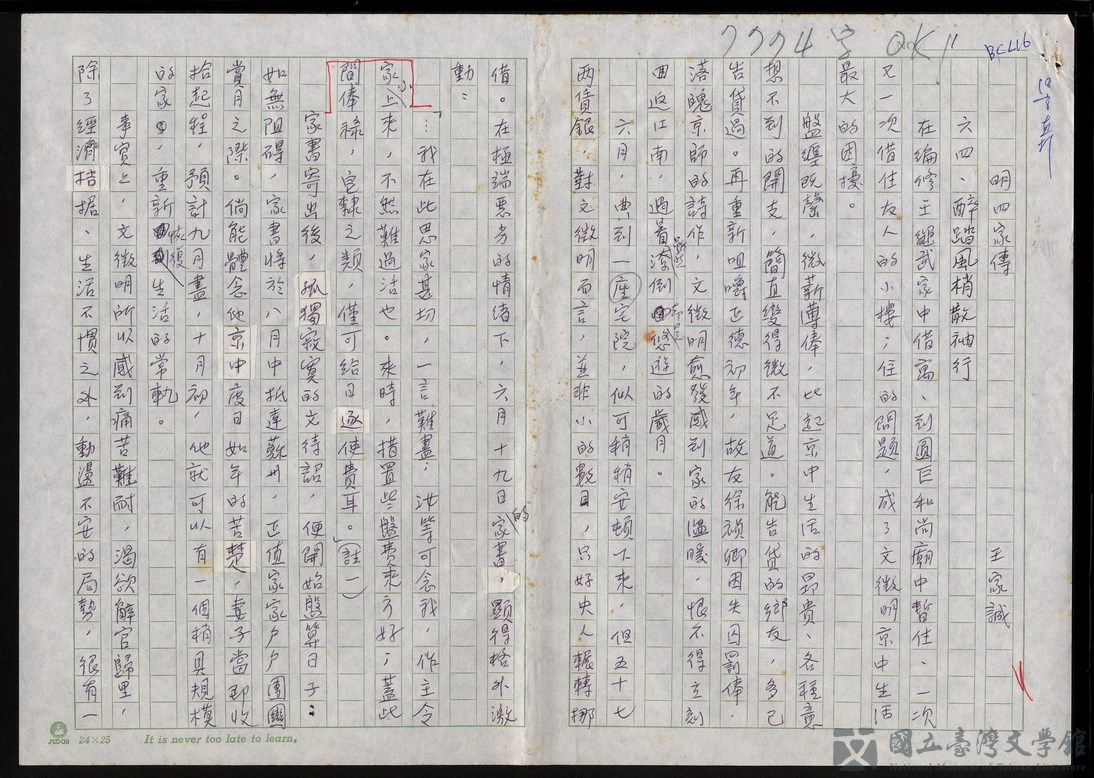 7774字 OK!!
BCL16
明四家傳
王家誠
六四、醉踏風梢散袖行
在編修王繩武家中借寓、到圓巨和尚廟中暫住、一次
又一次借住友人的小樓；住的問題，成了文徵明京中生活
最大的困擾。
盤纏既罄，微薪薄俸，比起京中生活的昂貴、各種意
想不到的開支，簡直變得微不足道。能告貸的鄉友，多已
告貸過。再重新咀嚼正德初年，故友徐禎卿因失囚罰俸，
落魄京師的詩作，文徵明愈發感到家的溫暖，恨不得立刻
回返江南，過着潦倒悠遊的歲月。
六月，典到一座宅院，似可稍稍安頓下來，但五十七
兩債銀，對文徵明而言，並非小的數目，只好央人輾轉挪
借。在極端惡劣的情緒下，六月十九日的家書，顯得格外激
動：
「…我在此思家甚切，一言難盡；汝等可念我，作主令
家小上來，不然難過活也。來時，措置些盤費來方好；蓋此
間俸祿，皂隸之類，僅可給日逐使費耳。」（註一）
家書寄出後，孤獨寂寞的文待詔，便開始盤算日子：
如無阻礙，家書將於八月中抵達蘇州，正值家家戶戶團圞
賞月之際。倘能體念他京中度日如年的苦楚，妻子當即收
拾起程，預計九月盡，十月初，他就可以有一個稍具規模
的家，重新恢復生活的常軌。
事實上，文徵明所以感到痛苦難耐，渴欲解官歸里，
除了經濟拮据、生活不慣之外，動盪不安的局勢，很有一
24×25 It is never too late to learn.
國立臺灣文學館